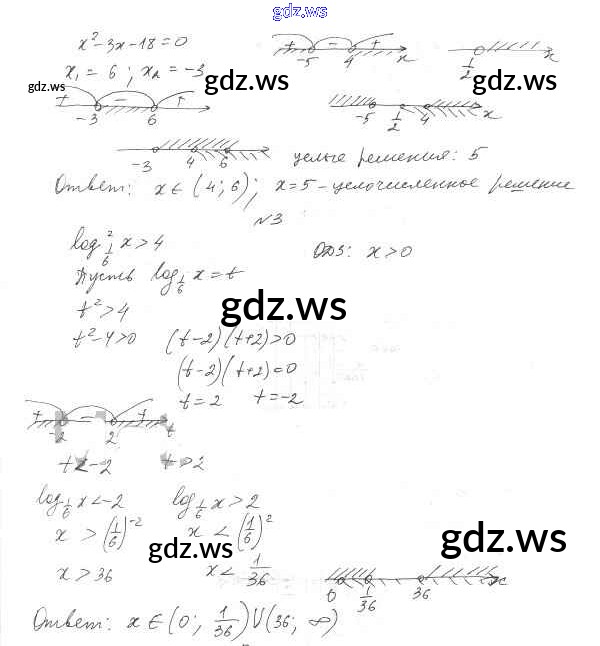 gdz.ws
x²-3x-18=0
x₁=6; x₂=-3
+ - +
-5 4 x
1/2 x
gdz.ws gdz.ws gdz.ws
+ - +
-3 6
-5 1/2 4 x
-3 4 6
целые решения: 5
Ответ: x∈(4; 6); x=5 - целочисленное решение
№3
log²_{1/6} x>4 ОДЗ: x>0
Пусть log_{1/6} x=t
t²>4
gdz.ws
t²-4>0 (t-2)(t+2)>0
(t-2)(t+2)=0
t=2 t=-2
+ - +
-2 2 t
t<-2 t>2
log_{1/6} x<-2 log_{1/6} x>2
x>(1/6)⁻² x<(1/6)²
gdz.ws gdz.ws
x>36 x<1/36
0 1/36 36 x
Ответ: x∈(0; 1/36)U(36; ∞)